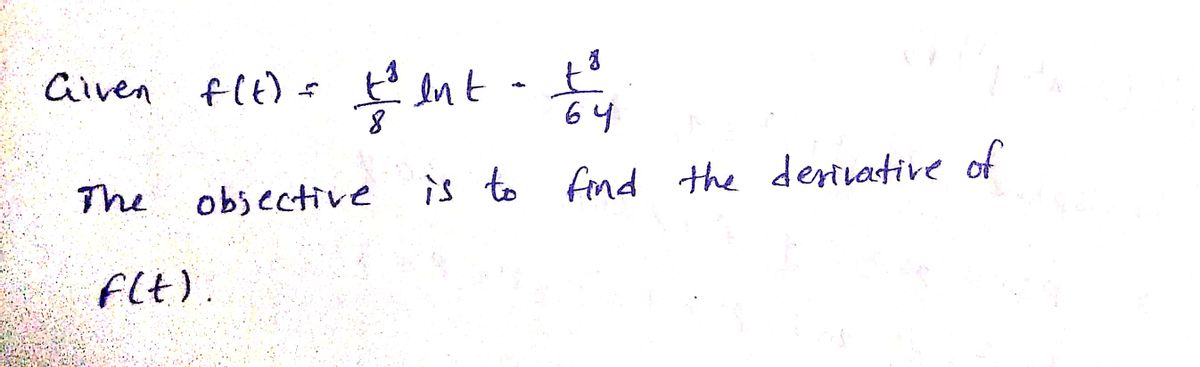 Given f(t) = t⁸/8 ln t - t⁸/64
The objective is to find the derivative of
f(t).